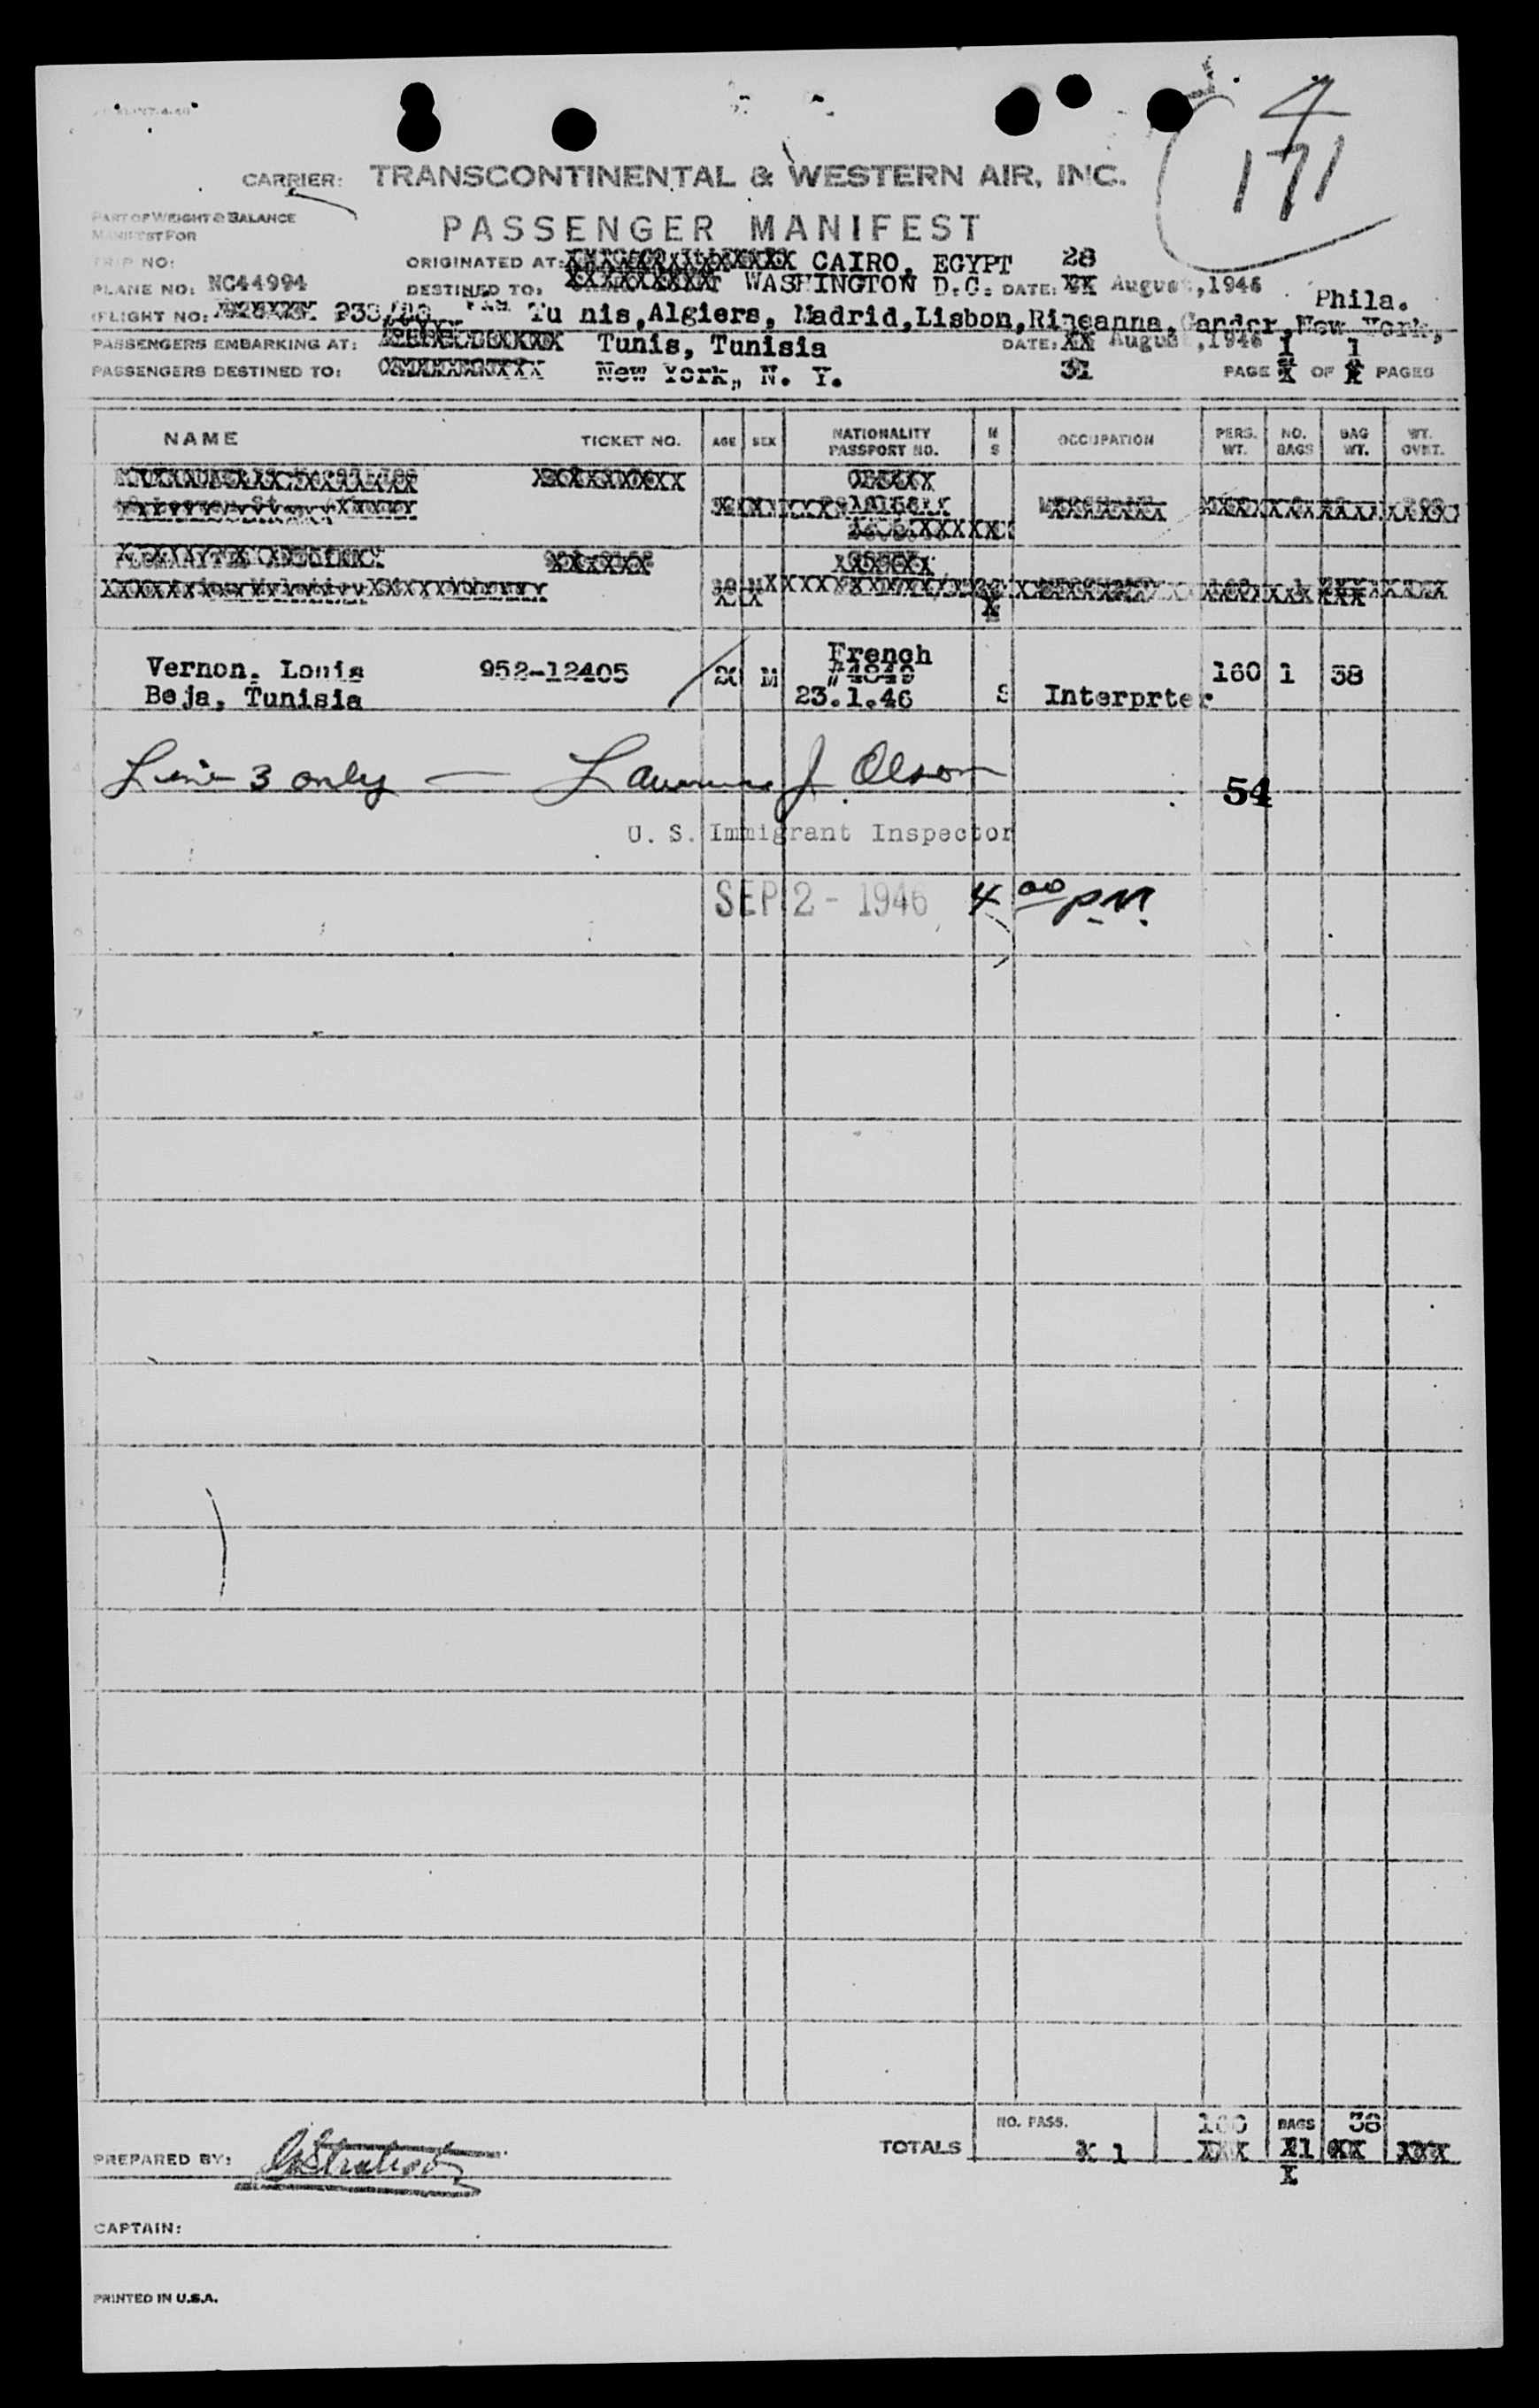 4
171
CARRIER: TRANSCONTINENTAL & WESTERN AIR, INC.
PART OF WEIGHT & BALANCE
MANIFEST FOR
PASSENGER MANIFEST
TRIP NO:
ORIGINATED AT: CAIRO, EGYPT 28
PLANE NO: NC44994 DESTINED TO: WASHINGTON D.C. DATE: XX August,1946
Phila.
FLIGHT NO: Tu nis,Algiers, Madrid,Lisbon,Rineanna,Gander,New York,
PASSENGERS EMBARKING AT: Tunis, Tunisia DATE: XX August,1946 1 1
PASSENGERS DESTINED TO: New York,, N. Y. 31 PAGE OF PAGES
NAME TICKET NO. AGE SEX NATIONALITY PASSPORT NO. M S OCCUPATION PERS. WT. NO. BAGS BAG WT. WT. OVRT.
French
Vernon, Louis 952-12405 M 160 1 38
Beja, Tunisia 23.1.46 S Interprter
Line 3 only — Lawrence J. Olson
54
U. S. Immigrant Inspector
SEP 2 - 1946 4 00 P.M.
NO. PASS. 160 BAGS 38
TOTALS X 1 XXX X1 XX XXX
X
PREPARED BY:
CAPTAIN:
PRINTED IN U.S.A.